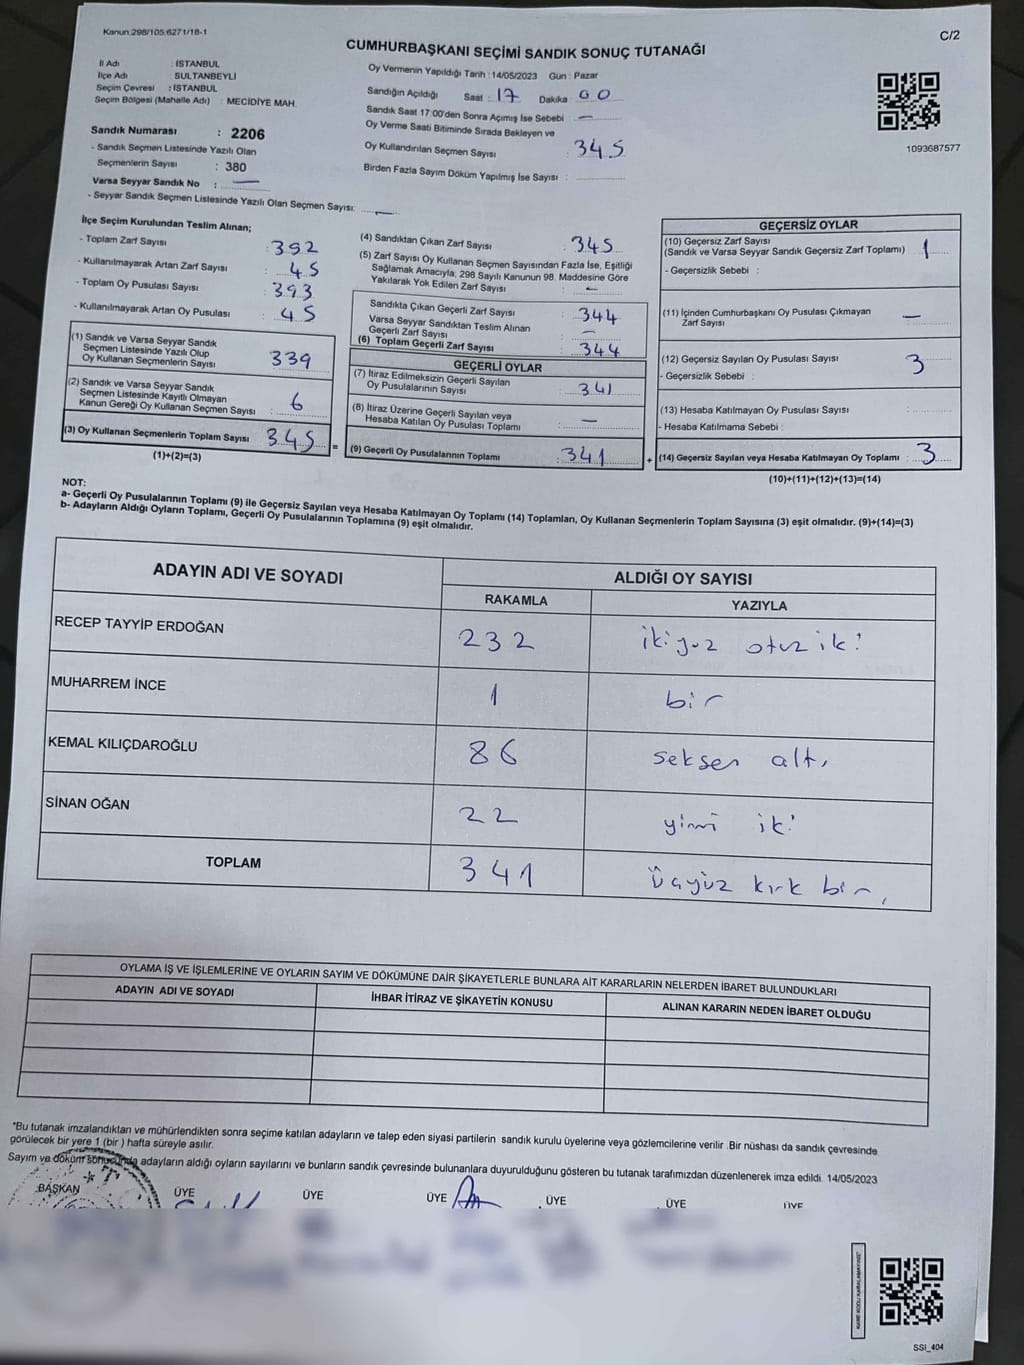 Kanun:298/105,6271/18-1
C/2
CUMHURBAŞKANI SEÇİMİ SANDIK SONUÇ TUTANAĞI
İl Adı : İSTANBUL
İlçe Adı : SULTANBEYLİ
Seçim Çevresi : İSTANBUL
Seçim Bölgesi (Mahalle Adı) : MECİDİYE MAH.
Sandık Numarası : 2206
- Sandık Seçmen Listesinde Yazılı Olan
Seçmenlerin Sayısı : 380
Varsa Seyyar Sandık No : —
- Seyyar Sandık Seçmen Listesinde Yazılı Olan Seçmen Sayısı: —
Oy Vermenin Yapıldığı Tarih : 14/05/2023 Gün : Pazar
Sandığın Açıldığı Saat : 17 Dakika : 00
Sandık Saat 17:00'den Sonra Açımış İse Sebebi : —
Oy Verme Saati Bitiminde Sırada Bekleyen ve
Oy Kullandırılan Seçmen Sayısı : 345
Birden Fazla Sayım Döküm Yapılmış İse Sayısı :
1093687577
İlçe Seçim Kurulundan Teslim Alınan;
- Toplam Zarf Sayısı : 392
- Kullanılmayarak Artan Zarf Sayısı : 45
- Toplam Oy Pusulası Sayısı : 393
- Kullanılmayarak Artan Oy Pusulası : 45
(1) Sandık ve Varsa Seyyar Sandık
Seçmen Listesinde Yazılı Olup
Oy Kullanan Seçmenlerin Sayısı : 339
(2) Sandık ve Varsa Seyyar Sandık
Seçmen Listesinde Kayıtlı Olmayan
Kanun Gereği Oy Kullanan Seçmen Sayısı : 6
(3) Oy Kullanan Seçmenlerin Toplam Sayısı : 345 =
(1)+(2)=(3)
(4) Sandıktan Çıkan Zarf Sayısı : 345
(5) Zarf Sayısı Oy Kullanan Seçmen Sayısından Fazla İse, Eşitliği
Sağlamak Amacıyla, 298 Sayılı Kanunun 98. Maddesine Göre
Yakılarak Yok Edilen Zarf Sayısı : —
Sandıkta Çıkan Geçerli Zarf Sayısı : 344
Varsa Seyyar Sandıktan Teslim Alınan
Geçerli Zarf Sayısı : —
(6) Toplam Geçerli Zarf Sayısı : 344
GEÇERLİ OYLAR
(7) İtiraz Edilmeksizin Geçerli Sayılan
Oy Pusulalarının Sayısı : 341
(8) İtiraz Üzerine Geçerli Sayılan veya
Hesaba Katılan Oy Pusulası Toplamı : —
(9) Geçerli Oy Pusulalarının Toplamı : 341 +
GEÇERSİZ OYLAR
(10) Geçersiz Zarf Sayısı
(Sandık ve Varsa Seyyar Sandık Geçersiz Zarf Toplamı) : 1
- Geçersizlik Sebebi :
(11) İçinden Cumhurbaşkanı Oy Pusulası Çıkmayan
Zarf Sayısı : —
(12) Geçersiz Sayılan Oy Pusulası Sayısı : 3
- Geçersizlik Sebebi :
(13) Hesaba Katılmayan Oy Pusulası Sayısı :
- Hesaba Katılmama Sebebi :
(14) Geçersiz Sayılan veya Hesaba Katılmayan Oy Toplamı : 3
(10)+(11)+(12)+(13)=(14)
NOT:
a- Geçerli Oy Pusulalarının Toplamı (9) ile Geçersiz Sayılan veya Hesaba Katılmayan Oy Toplamı (14) Toplamları, Oy Kullanan Seçmenlerin Toplam Sayısına (3) eşit olmalıdır. (9)+(14)=(3)
b- Adayların Aldığı Oyların Toplamı, Geçerli Oy Pusulalarının Toplamına (9) eşit olmalıdır.
ADAYIN ADI VE SOYADI ALDIĞI OY SAYISI
RAKAMLA YAZIYLA
RECEP TAYYİP ERDOĞAN 232 ikiyuz otuz iki
MUHARREM İNCE 1 bir
KEMAL KILIÇDAROĞLU 86 seksen altı
SİNAN OĞAN 22 yirmi iki
TOPLAM 341 üçyüz kırk bir
OYLAMA İŞ VE İŞLEMLERİNE VE OYLARIN SAYIM VE DÖKÜMÜNE DAİR ŞİKAYETLERLE BUNLARA AİT KARARLARIN NELERDEN İBARET BULUNDUKLARI
ADAYIN ADI VE SOYADI İHBAR İTİRAZ VE ŞİKAYETİN KONUSU ALINAN KARARIN NEDEN İBARET OLDUĞU
*Bu tutanak imzalandıktan ve mühürlendikten sonra seçime katılan adayların ve talep eden siyasi partilerin sandık kurulu üyelerine veya gözlemcilerine verilir .Bir nüshası da sandık çevresinde
görülecek bir yere 1 (bir ) hafta süreyle asılır.
Sayım ve döküm sonucunda adayların aldığı oyların sayılarını ve bunların sandık çevresinde bulunanlara duyurulduğunu gösteren bu tutanak tarafımızdan düzenlenerek imza edildi. 14/05/2023
BAŞKAN ÜYE ÜYE ÜYE ÜYE ÜYE ÜYE
SSI_404